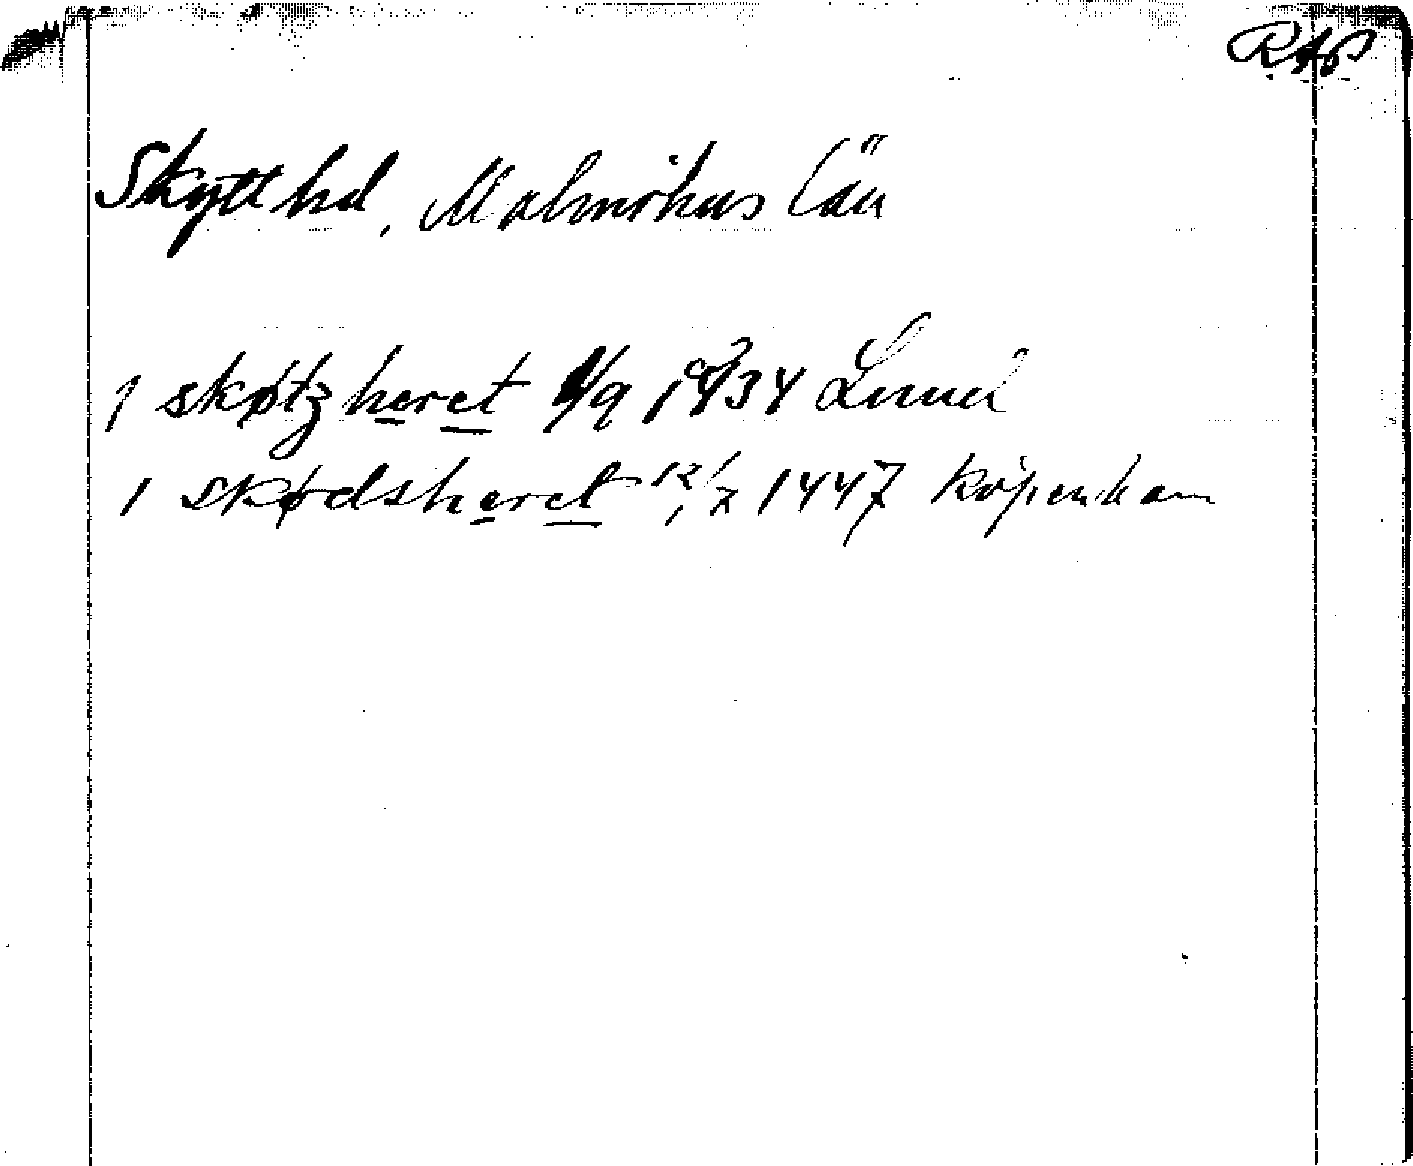 RAp
Skytt hd, Malmöhus län
1 skøtzheret 8/9 1434 Lund
1 skødsheret 12/7 1447 Köpenham